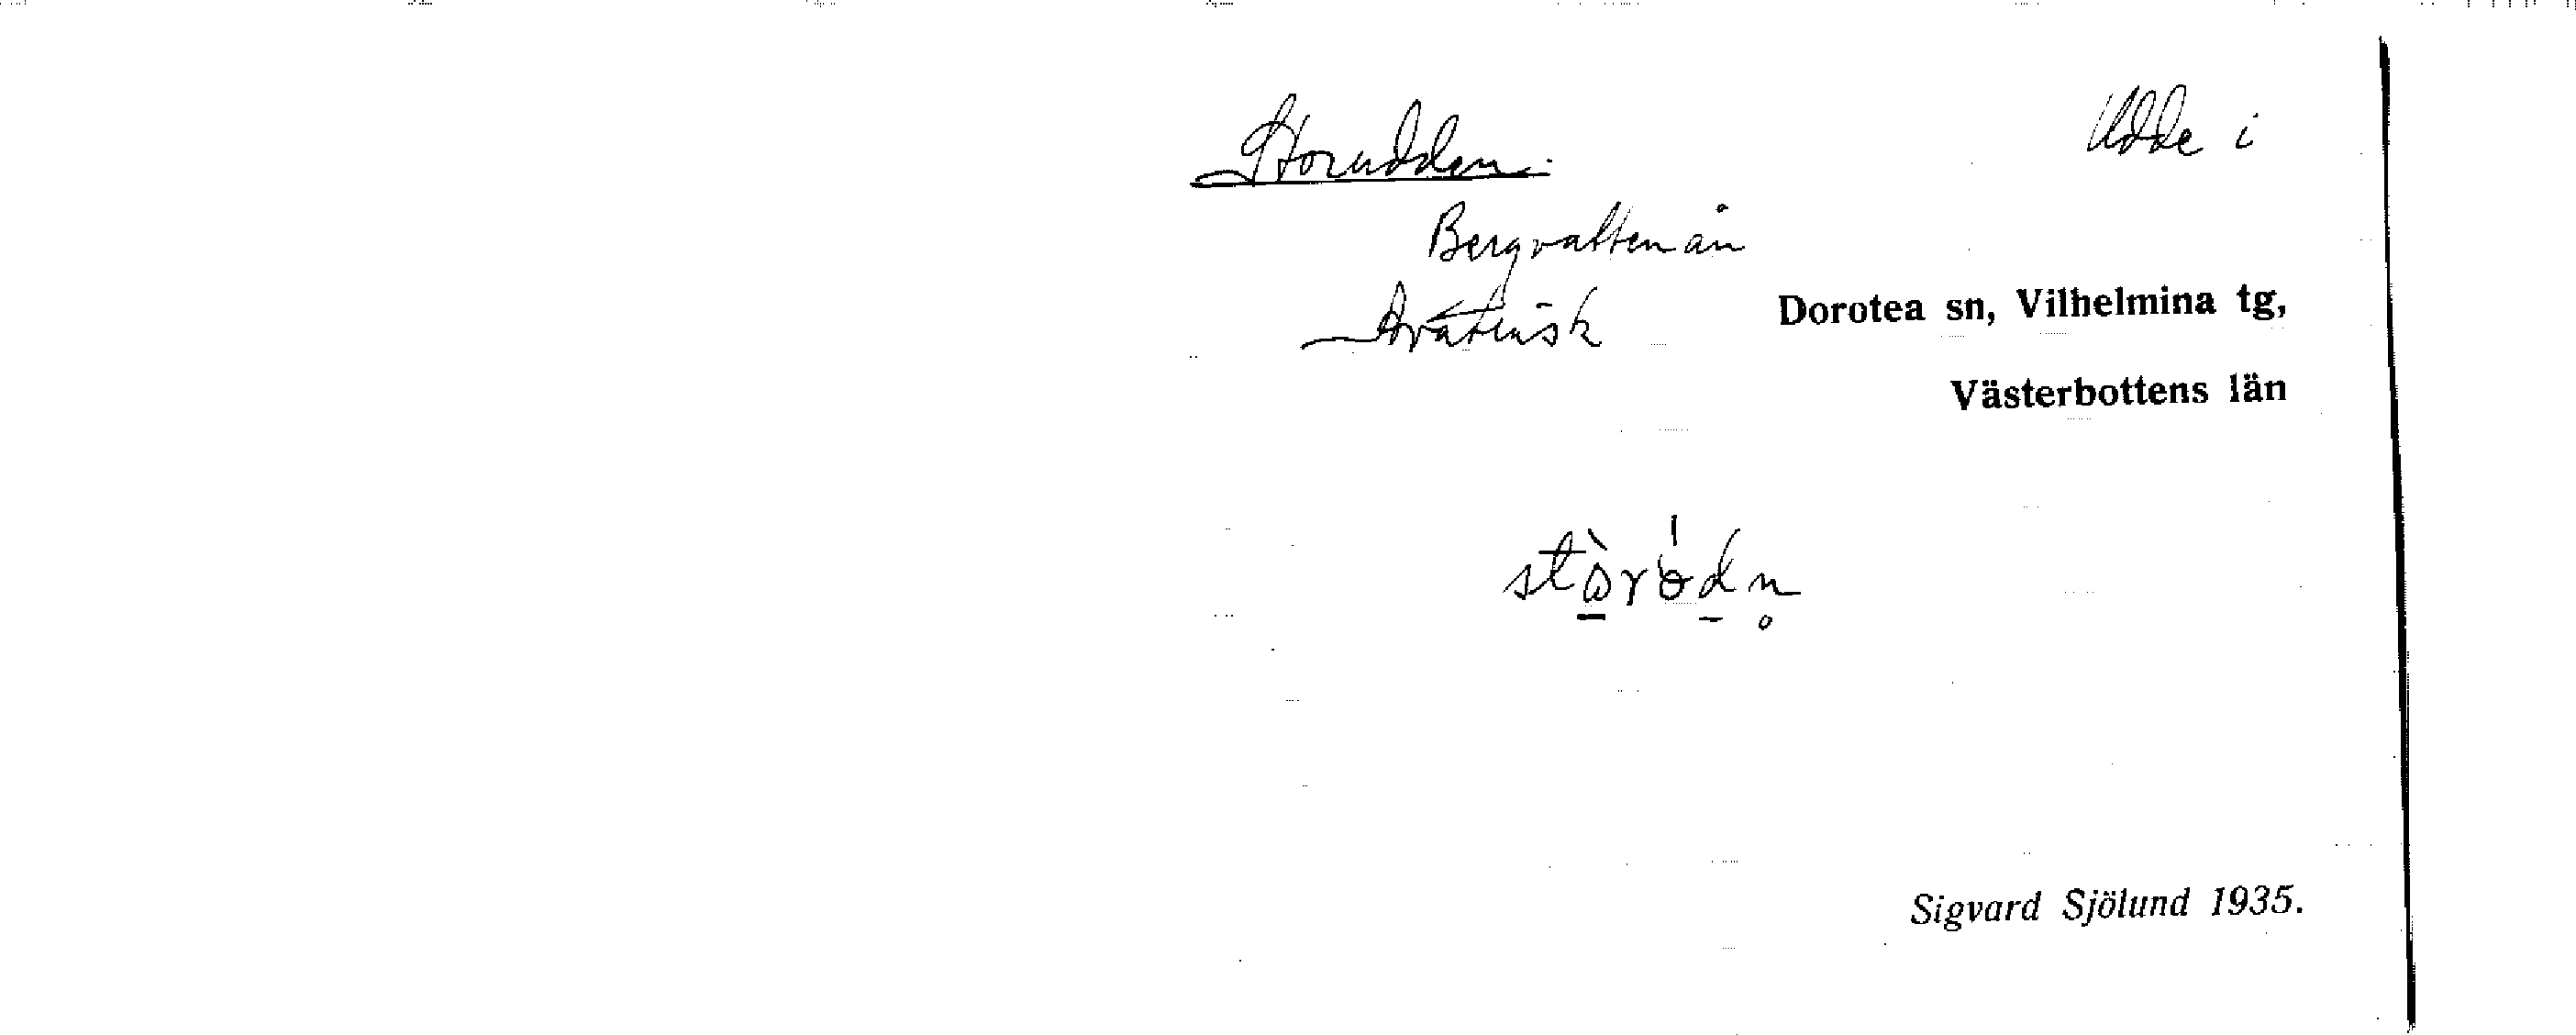 Storudden. Udde i
Bergvattenån
Avaträsk Dorotea sn, Vilhelmina tg,
Västerbottens län
Sigvard Sjölund 1935.